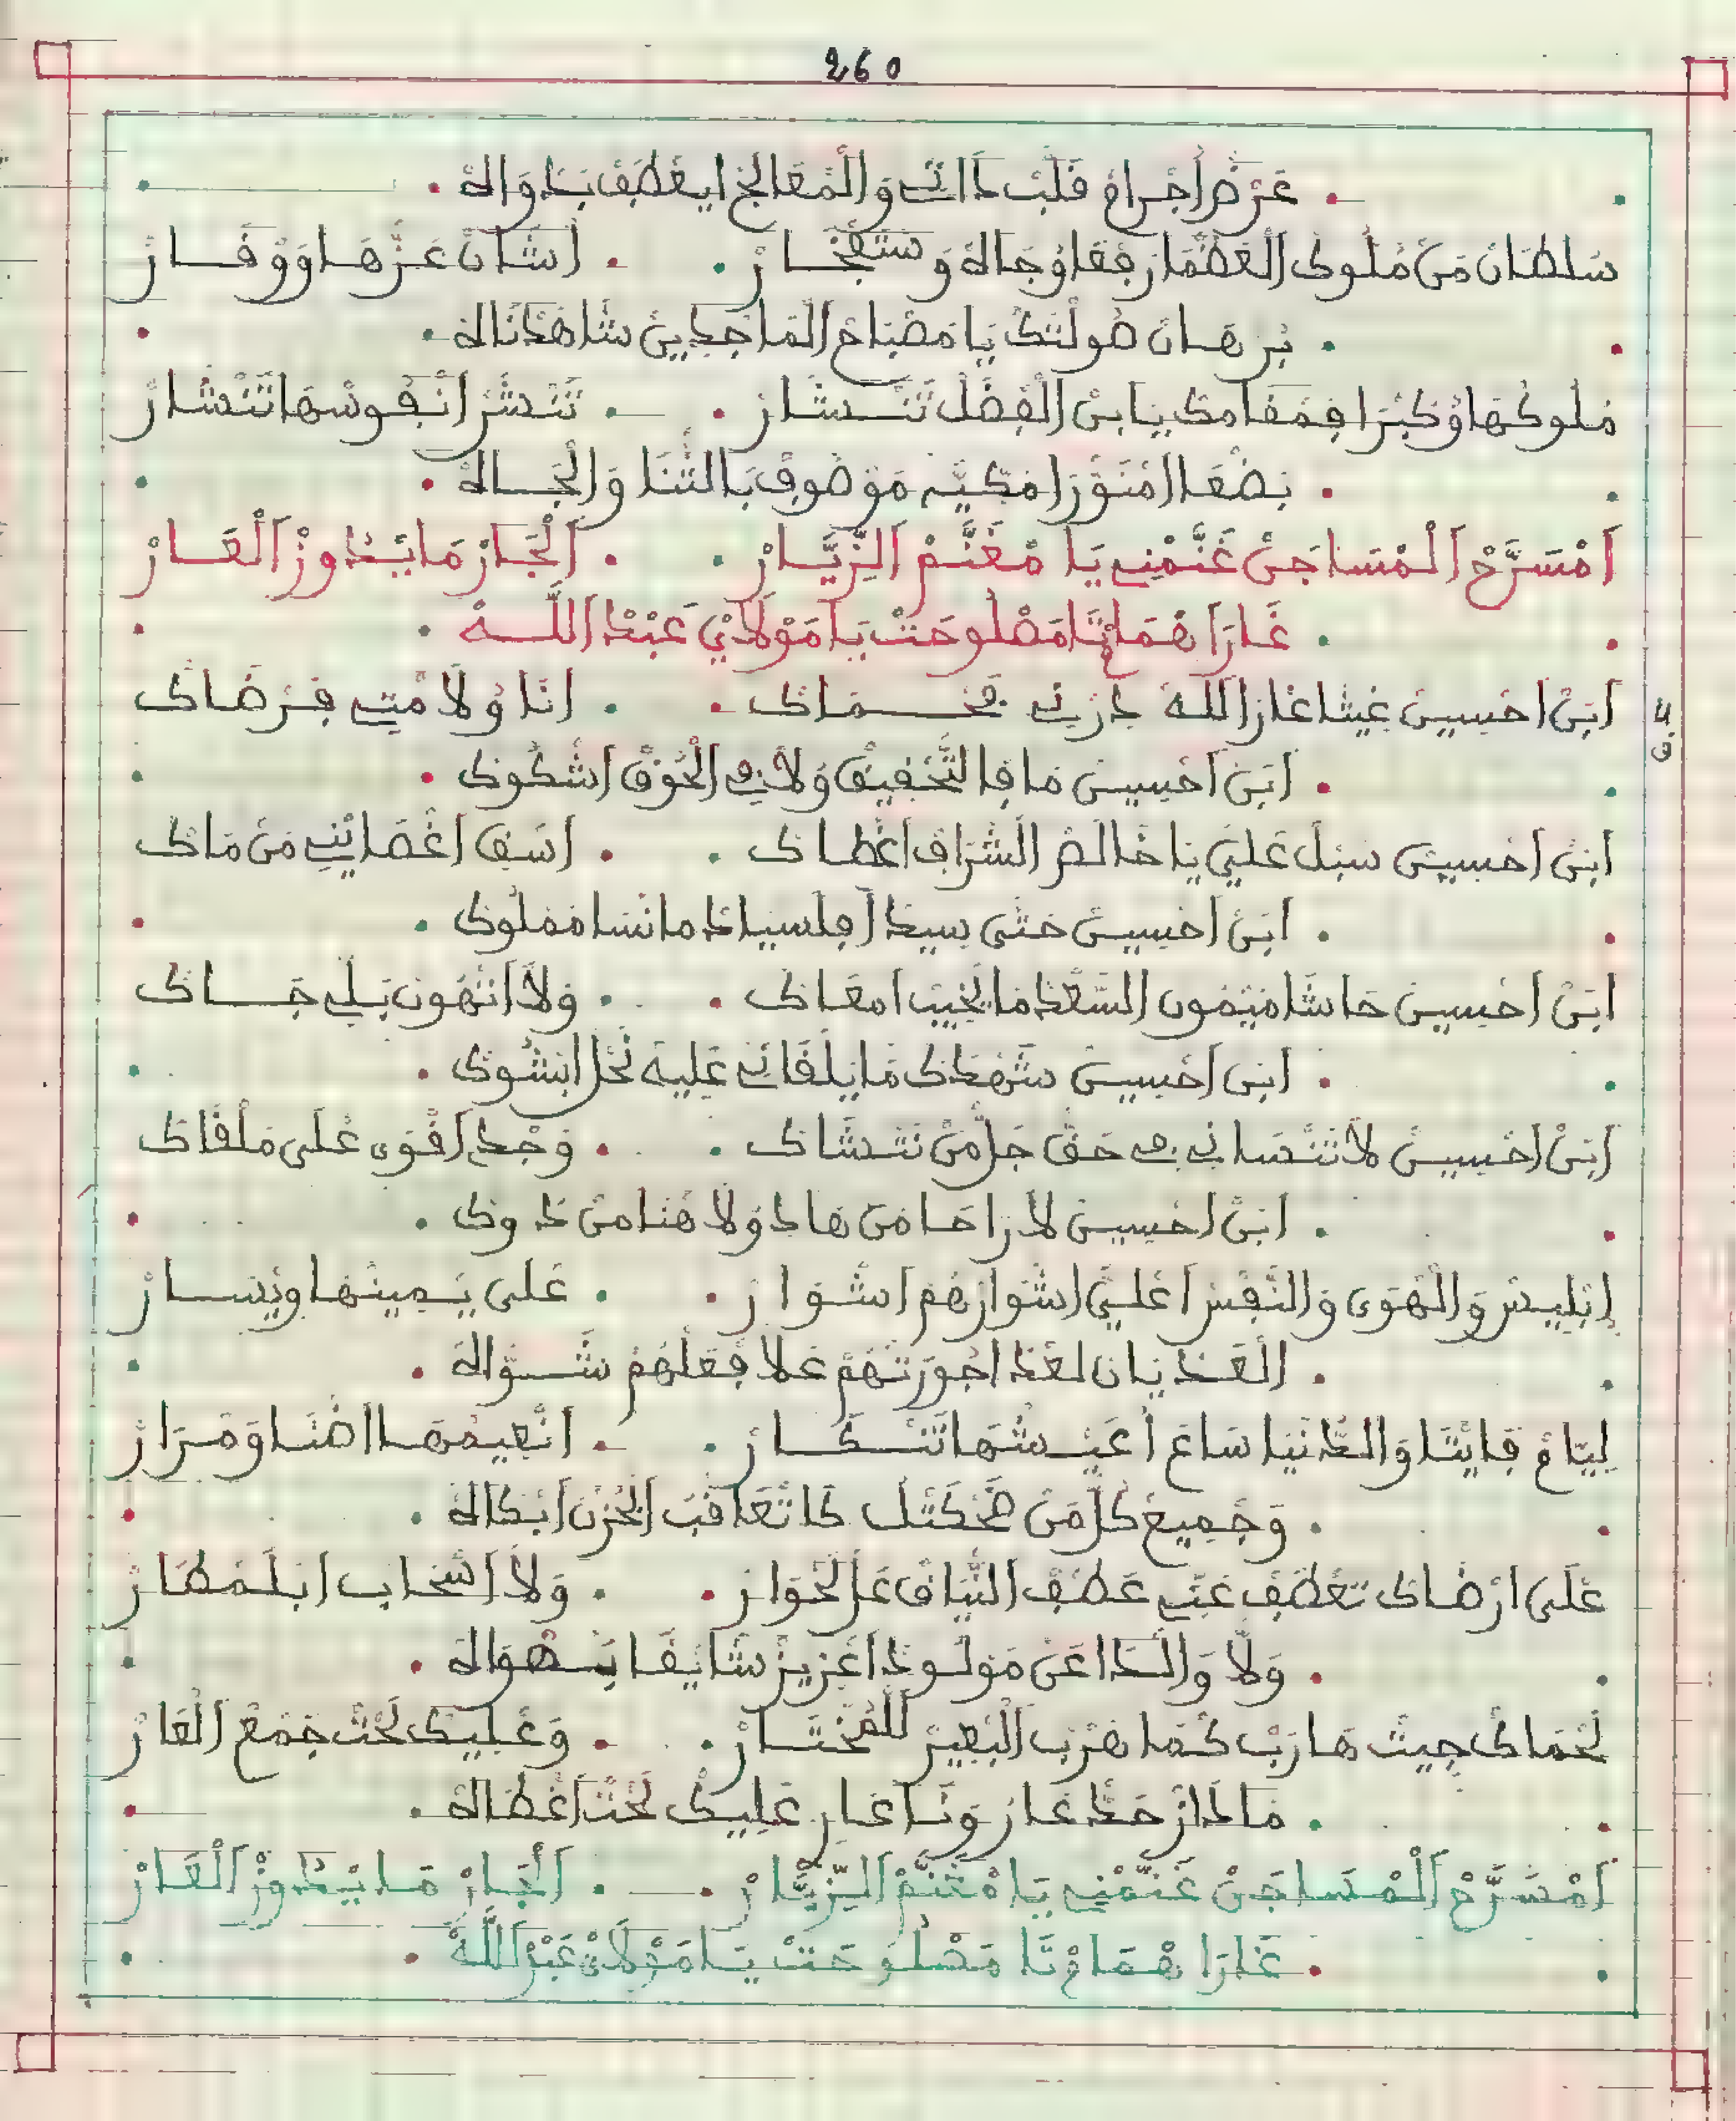 260
عَرْضْ اجْرَاحْ قَلْبْ دَاتِي وَالْمْعَالِجْ ايعَطَفْ بَدْوَاهْ
سَلطَانْ مَنْ مْلُوكْ الْعَظْمَا رفعَا وُجَاهْ وسْتَفْخَارْ . اشَانْ عَزّْهَا وَوْقَارْ
بُرهَانْ صُولْتَكْ يَا مَصْبَاحْ الْمَاجْدِينْ شَاهَدْنَاهْ
مْلُوكْهَا وُكُبْرَا فمَقَامَكْ يَا بَنْ الْفَضْلْ تَنْشَارْ . تَنْشَرْ انْفُوسْهَا تَنْشَارْ
بَضْعَا امْنَوّْرَا مَكِّيَّه مَوْصُوفْ بَالثّْنَا وَالْجَاهْ
اَمْسَرَّحْ الْمْسَاجَنْ غَنَّمْنِي يَا مْغَنَّمْ الزِّيَّارْ . الْجَارْ مَا يْدُوزْ الْعَارْ
غَارَا هْمَامْنَا مَصْلُوحَتْ يَا مَوْلَايْ عَبْدْ اللَّهْ
ابَنْ احْسِينْ غِيتَا غَارَ اللهْ دَرْنِي فحْمَاكْ . انَا وُلَامْتِي فرْضَاكْ
ابَنْ احْسِينْ مَا فالتَّخْفِيفْ وَلَا فِي الْخُوفْ اشْكُوكْ
ابَنْ احْسِينْ سْبَلْ عَلِيَّ يَا خَالَصْ الشّْرَافْ اغْطَاكْ . اسَقِ اغْصَايْنِي مَنْ مَاكْ
ابَنْ احْسِينْ حَتَّى سِيدْ افلَسيَادْ مَا نْسَا مَمْلُوكْ
ابَنْ احْسِينْ حَاشَا مَيْمُونْ السَّعْدْ مَا يْخِيبْ امْعَاكْ . وَلَا انْهُونْ بَلِّي جَاكْ
ابَنْ احْسِينْ شَهْدَكْ مَا يَلْقَانِي عْلِيهْ نْحَلْ ابْشُوكْ
ابَنْ احْسِينْ لَا تَنْسَانِي فِي حَقّْ جَلّْ مَنْ نَشَّاكْ . وَجْدِي اقْوَى عْلَى مَلْقَاكْ
ابَنْ احْسِينْ لَا رَاحَا مَنْ هَادْ وَلَا هْنَا مَنْ دُوكْ
اِبْلِيسْ وَالْهْوَى وَالنَّفْسْ اعْلِيَّ اشْوَارْهُمْ اشْوَارْ . عَلَى يَمِينْهَا وِيْسَارْ
الْعَدْيَانْ لعْدَ اجْوَرْتْهُمْ عَلَا فْعَلْهُمْ شَوَّاهْ
لِيَّامْ فَايْتَا وَالدَّنْيَا سَاعَ اعْيَشْهَا تَنْكَارْ . انْعِيمْهَا افْنَا وَمْرَارْ
وَجْمِيعْ كُلّْ مَنْ ضَحْكَتْلْ كَا تْعَاقْبَ الْحُزْنْ ابْكَاهْ
عْلَى ارْضَاكْ تَعْطَفْ عَنِّي عَطْفْ النِّيَاقْ عَلْحْوَارْ . وَلَا اسْحَابْ ابْلَمْطَارْ
وَلَا وَالْدَا عَنْ مَوْلُودْ اعْزِيزْ شَايْقَا بَهْوَاهْ
لَحْمَاكْ جِيتْ هَارَبْ كْمَا هْرَبْ الْبْعِيرْ لَلْمُخْتَارْ . وَعْلِيكْ لَحْتْ جَمْعْ الْعَارْ
مَادَا ارْحَدْ عَارْ وَنَا عَارِ عْلِيكْ لَحْتْ اعْطَاهْ
اَمْسَرَّحْ الْمْسَاجَنْ غَنَّمْنِي يَا مْغَنَّمْ الزِّيَّارْ . الْجَارْ مَا يْدُوزْ الْعَارْ
غَارَا هْمَامْنَا مَصْلُوحَتْ يَا مَوْلَايْ عَبْدْ اللَّهْ